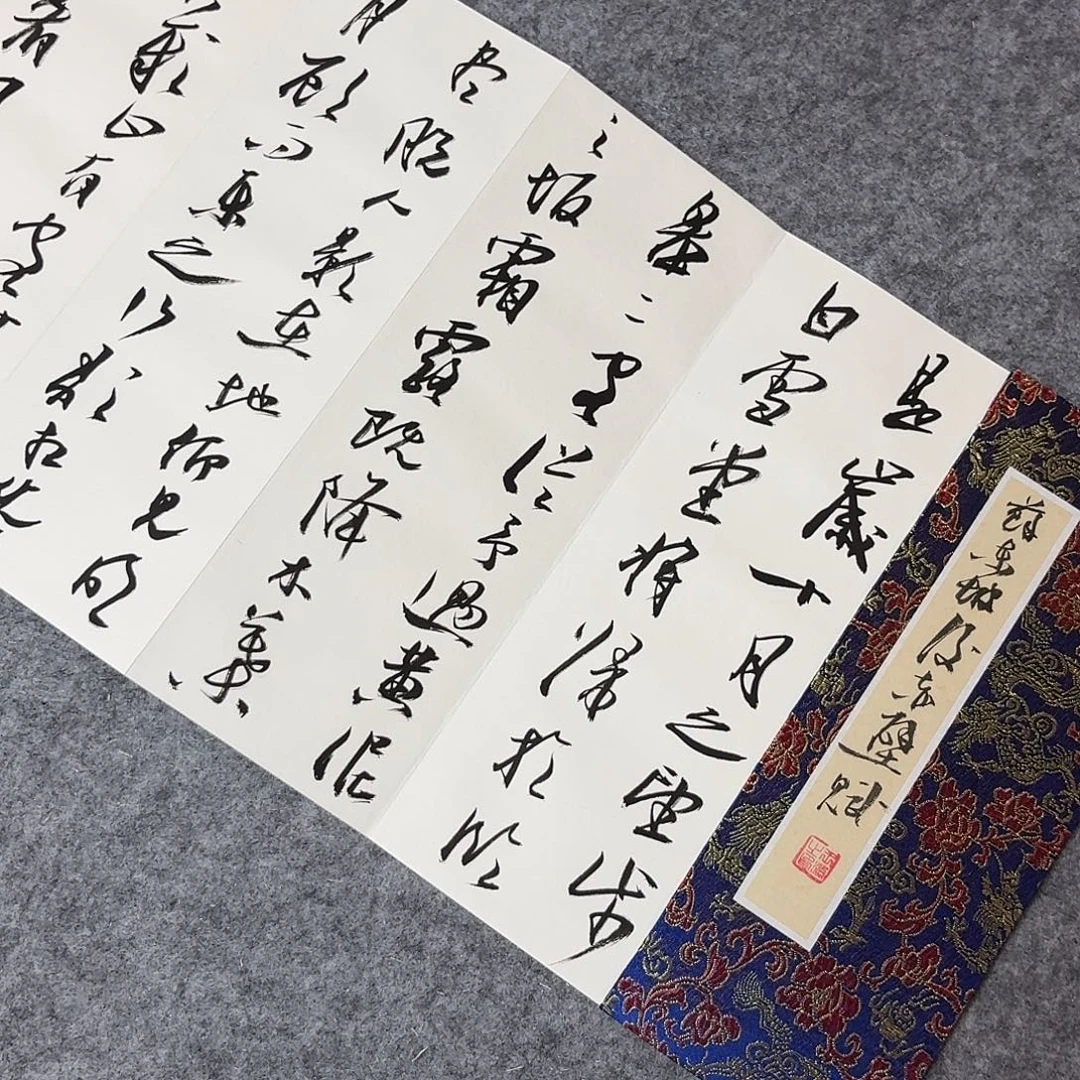 蘇東坡後赤壁賦
是歲十月之望步
自雪堂將歸於临
皋二客從予過黄泥
之坂霜露既降木葉
尽脱人影在地仰見明
月顧而樂之行歌相答
歎曰有客